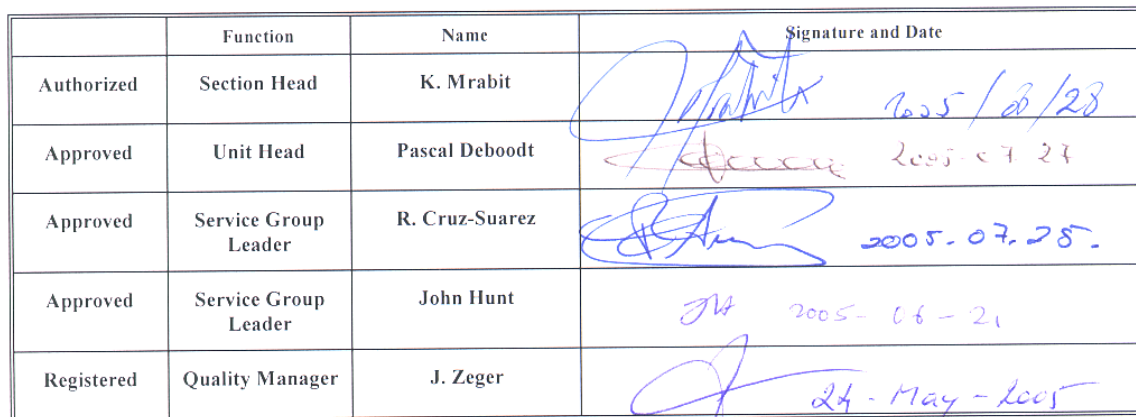 Function Name Signature and Date
Authorized Section Head K. Mrabit 2005/08/28
Approved Unit Head Pascal Deboodt 2005-07 27
Approved Service Group Leader R. Cruz-Suarez 2005.07.25.
Approved Service Group Leader John Hunt JH 2005-06-21
Registered Quality Manager J. Zeger 24-May-2005